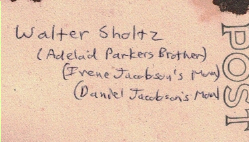 Walter Sholtz
(Adelaid Parkers Brother)
(Irene Jacobson's Mom)
(Daniel Jacobson's Mom
POST